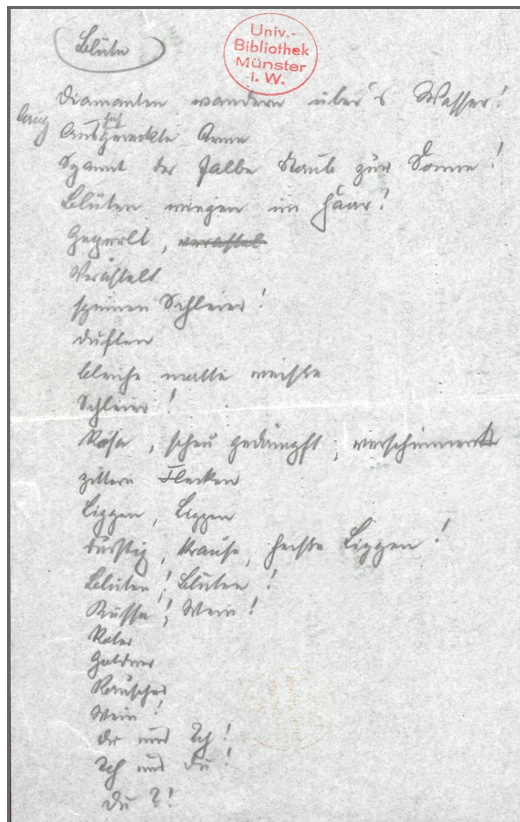 Blüte
Univ.-
Bibliothek
Münster
i. W.
Diamanten wandern über's Wasser!
Ausgereckte Arme
Spannt der falbe Staub zur Sonne!
Blüten wiegen im Haar!
Geperlt, verästel
Verästelt
spinnen Schleier!
Duften
bleiche matte weiße
Schleier!
Rosa, scheu gedämpft, verschimmert
zittern Flecken
Lippen, Lippen
durstig, krause, heiße Lippen!
Blüten! Blüten!
Küsse! Wein!
Roter
Goldner
Rauscher
Wein!
Du und Ich!
Ich und Du!
Du?!